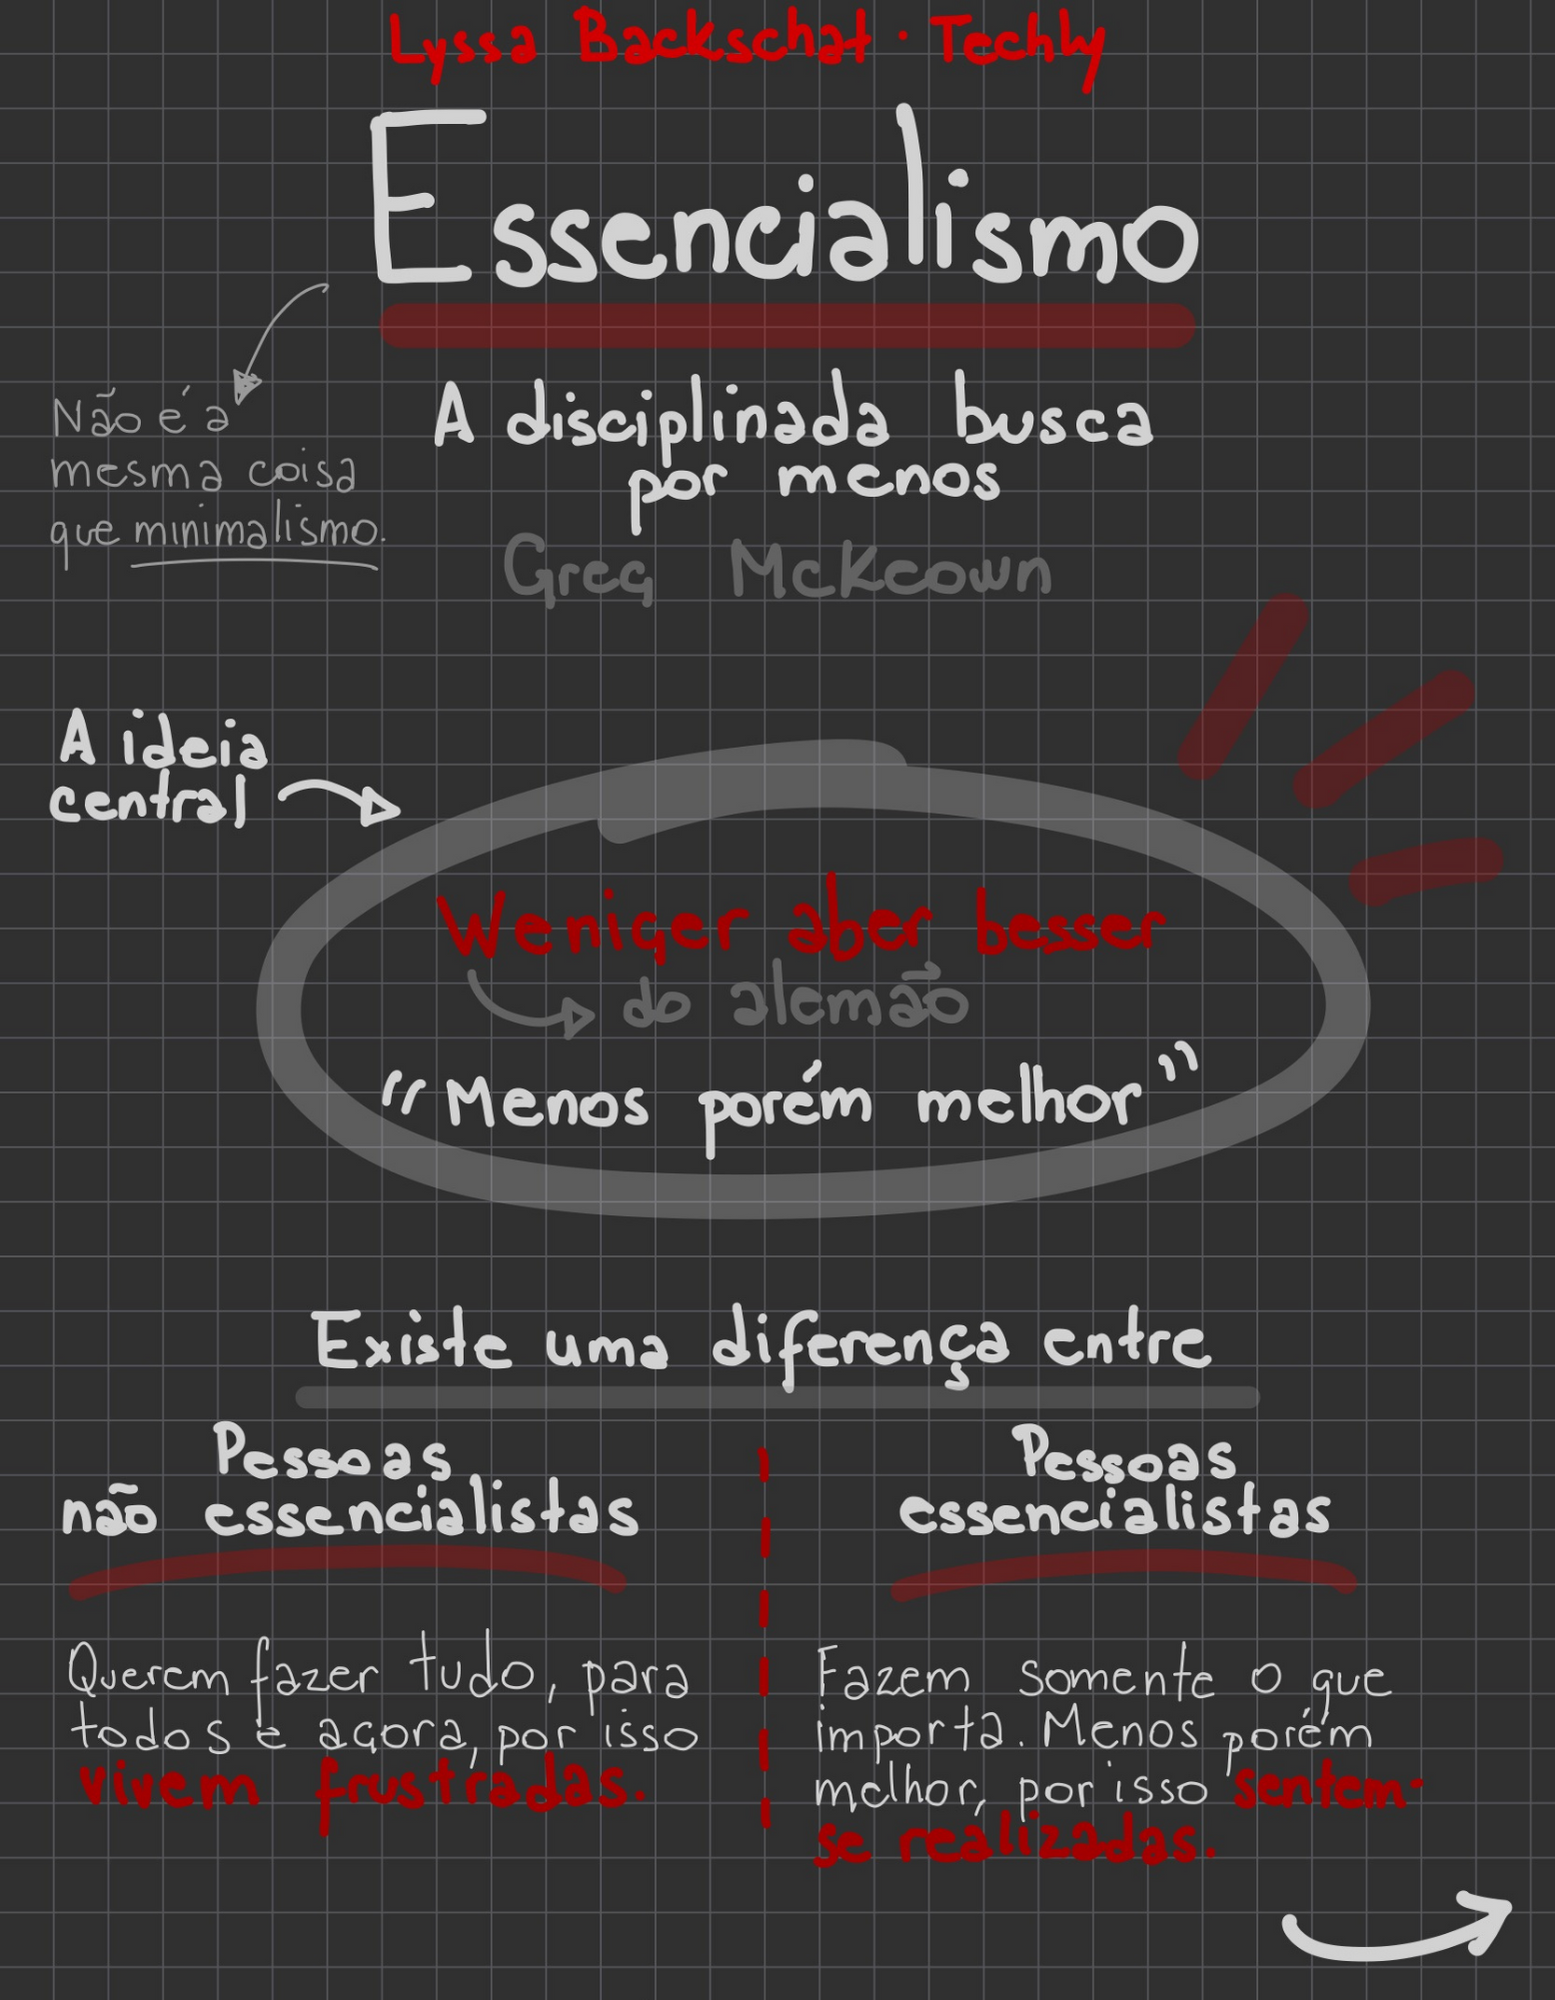 Lyssa Backschat · Techly
Essencialismo
Não é a
mesma coisa
que minimalismo.
A disciplinada busca
por menos
Greg McKeown
A ideia
central
Weniger aber besser
do alemão
"Menos porém melhor"
Existe uma diferença entre
Pessoas
não essencialistas
Querem fazer tudo, para
todos e agora, por isso
vivem frustradas.
Pessoas
essencialistas
Fazem somente o que
importa. Menos porém
melhor, por isso sentem-
se realizadas.